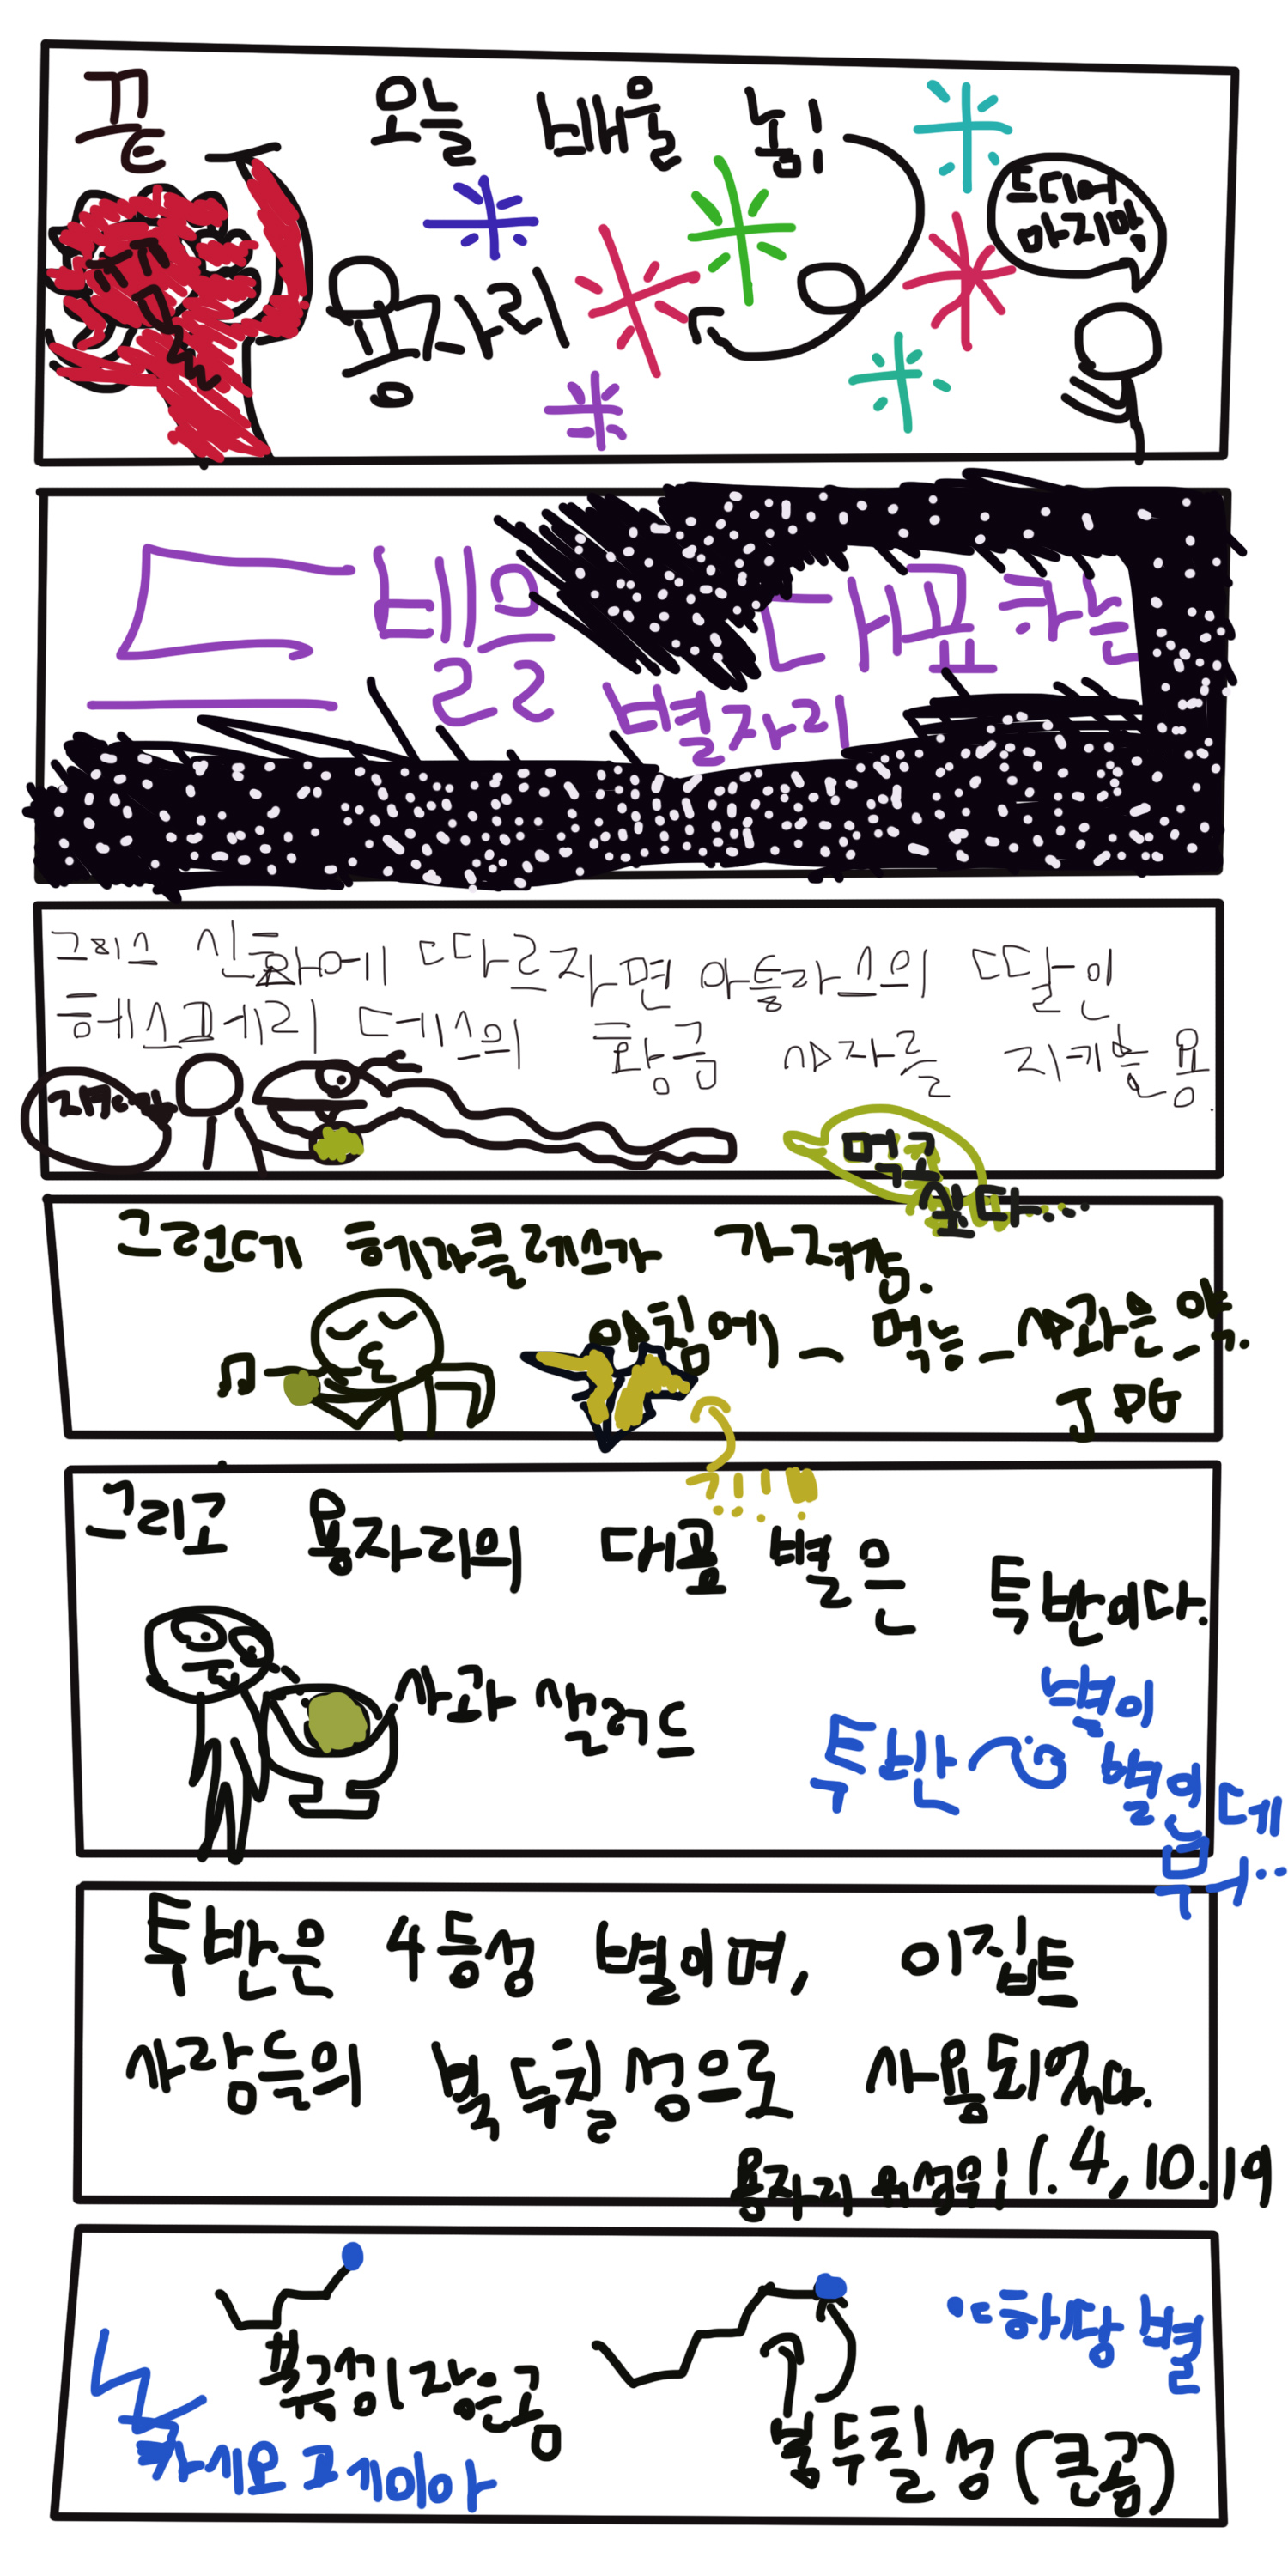 끝
오늘 배울 놈!
드디어
마지막
용자리
드
베를
다묘한
별자리
그리스 신화에 따르자면 아틀라스의 딸인
헤스페리데스의 황금 사과를 지키는 용
먹고
싶다...
그런데 헤라클레스가 가져감.
아침에 _ 먹는 _ 사과는 _ 약.
JPG
그리고 용자리의 대표 별은 투반이다.
사과 샐러드
별이
투반~
별인데
뭐..
투반은 4등성 별이며, 이집트
사람들의 북두칠성으로 사용되었다.
용자리 유성우! 1.4, 10.19
해당 별
북극성 | 작은곰
북두칠성 (큰곰)
카세오페이아